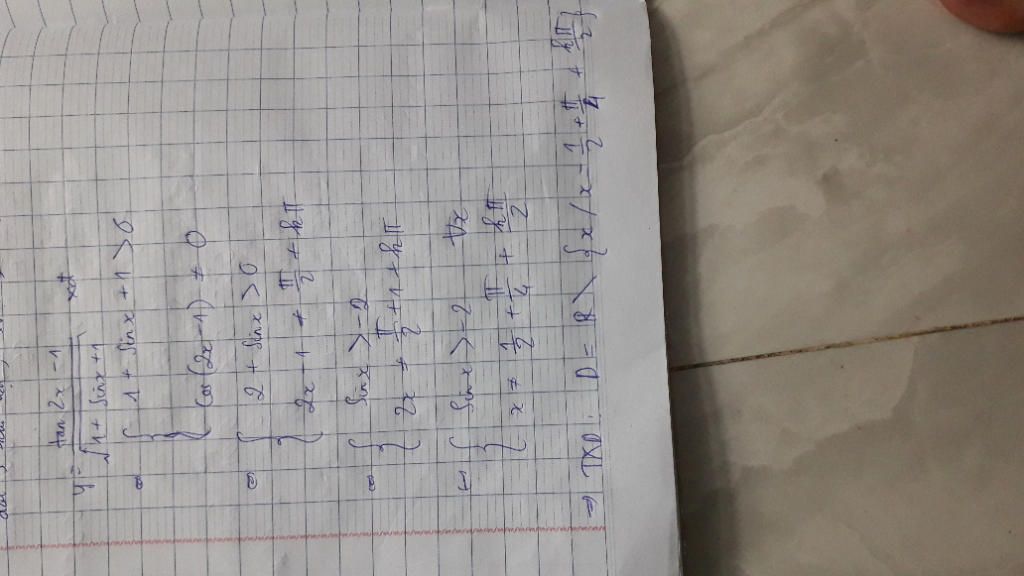 y = tan 2x - 1 / √(1 + sin x + 1) xđ
⇔ { 1 + sin x + 1 > 0
{ cos(2x-1) ≠ 0
⇔ { 2 + sin x > 0
{ 2x - 1 ≠ π/2 + kπ
⇔ { sin x > -2
{ 2x ≠ π/2 + 1 + kπ
⇔ { sin x > -2 ∀x
{ x ≠ 1/2 + π/4 + kπ/2
⇒ TXĐ: D = R \ { x / x = 1/2 + π/4 + kπ/2 }